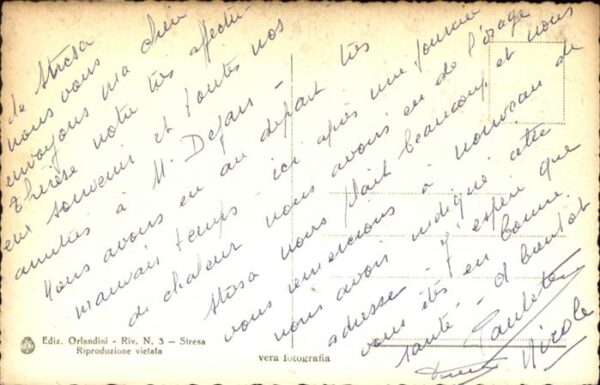 de Stresa
nous vous
envoyons ma chère
Thérèse notre très affectu-
eux souvenir et toutes nos
amitiés à M. Dejars -
Nous avons eu au départ très
mauvais temps - ici après une journée
de chaleur nous avons eu de l'orage
Stresa nous plait beaucoup et nous
vous remercions à nouveau de
nous avoir indiqué cette
adresse - J'espère que
vous êtes en bonne
santé - à bientôt
Nicole
Ediz. Orlandini - Riv. N. 3 - Stresa
Riproduzione vietata
vera fotografia